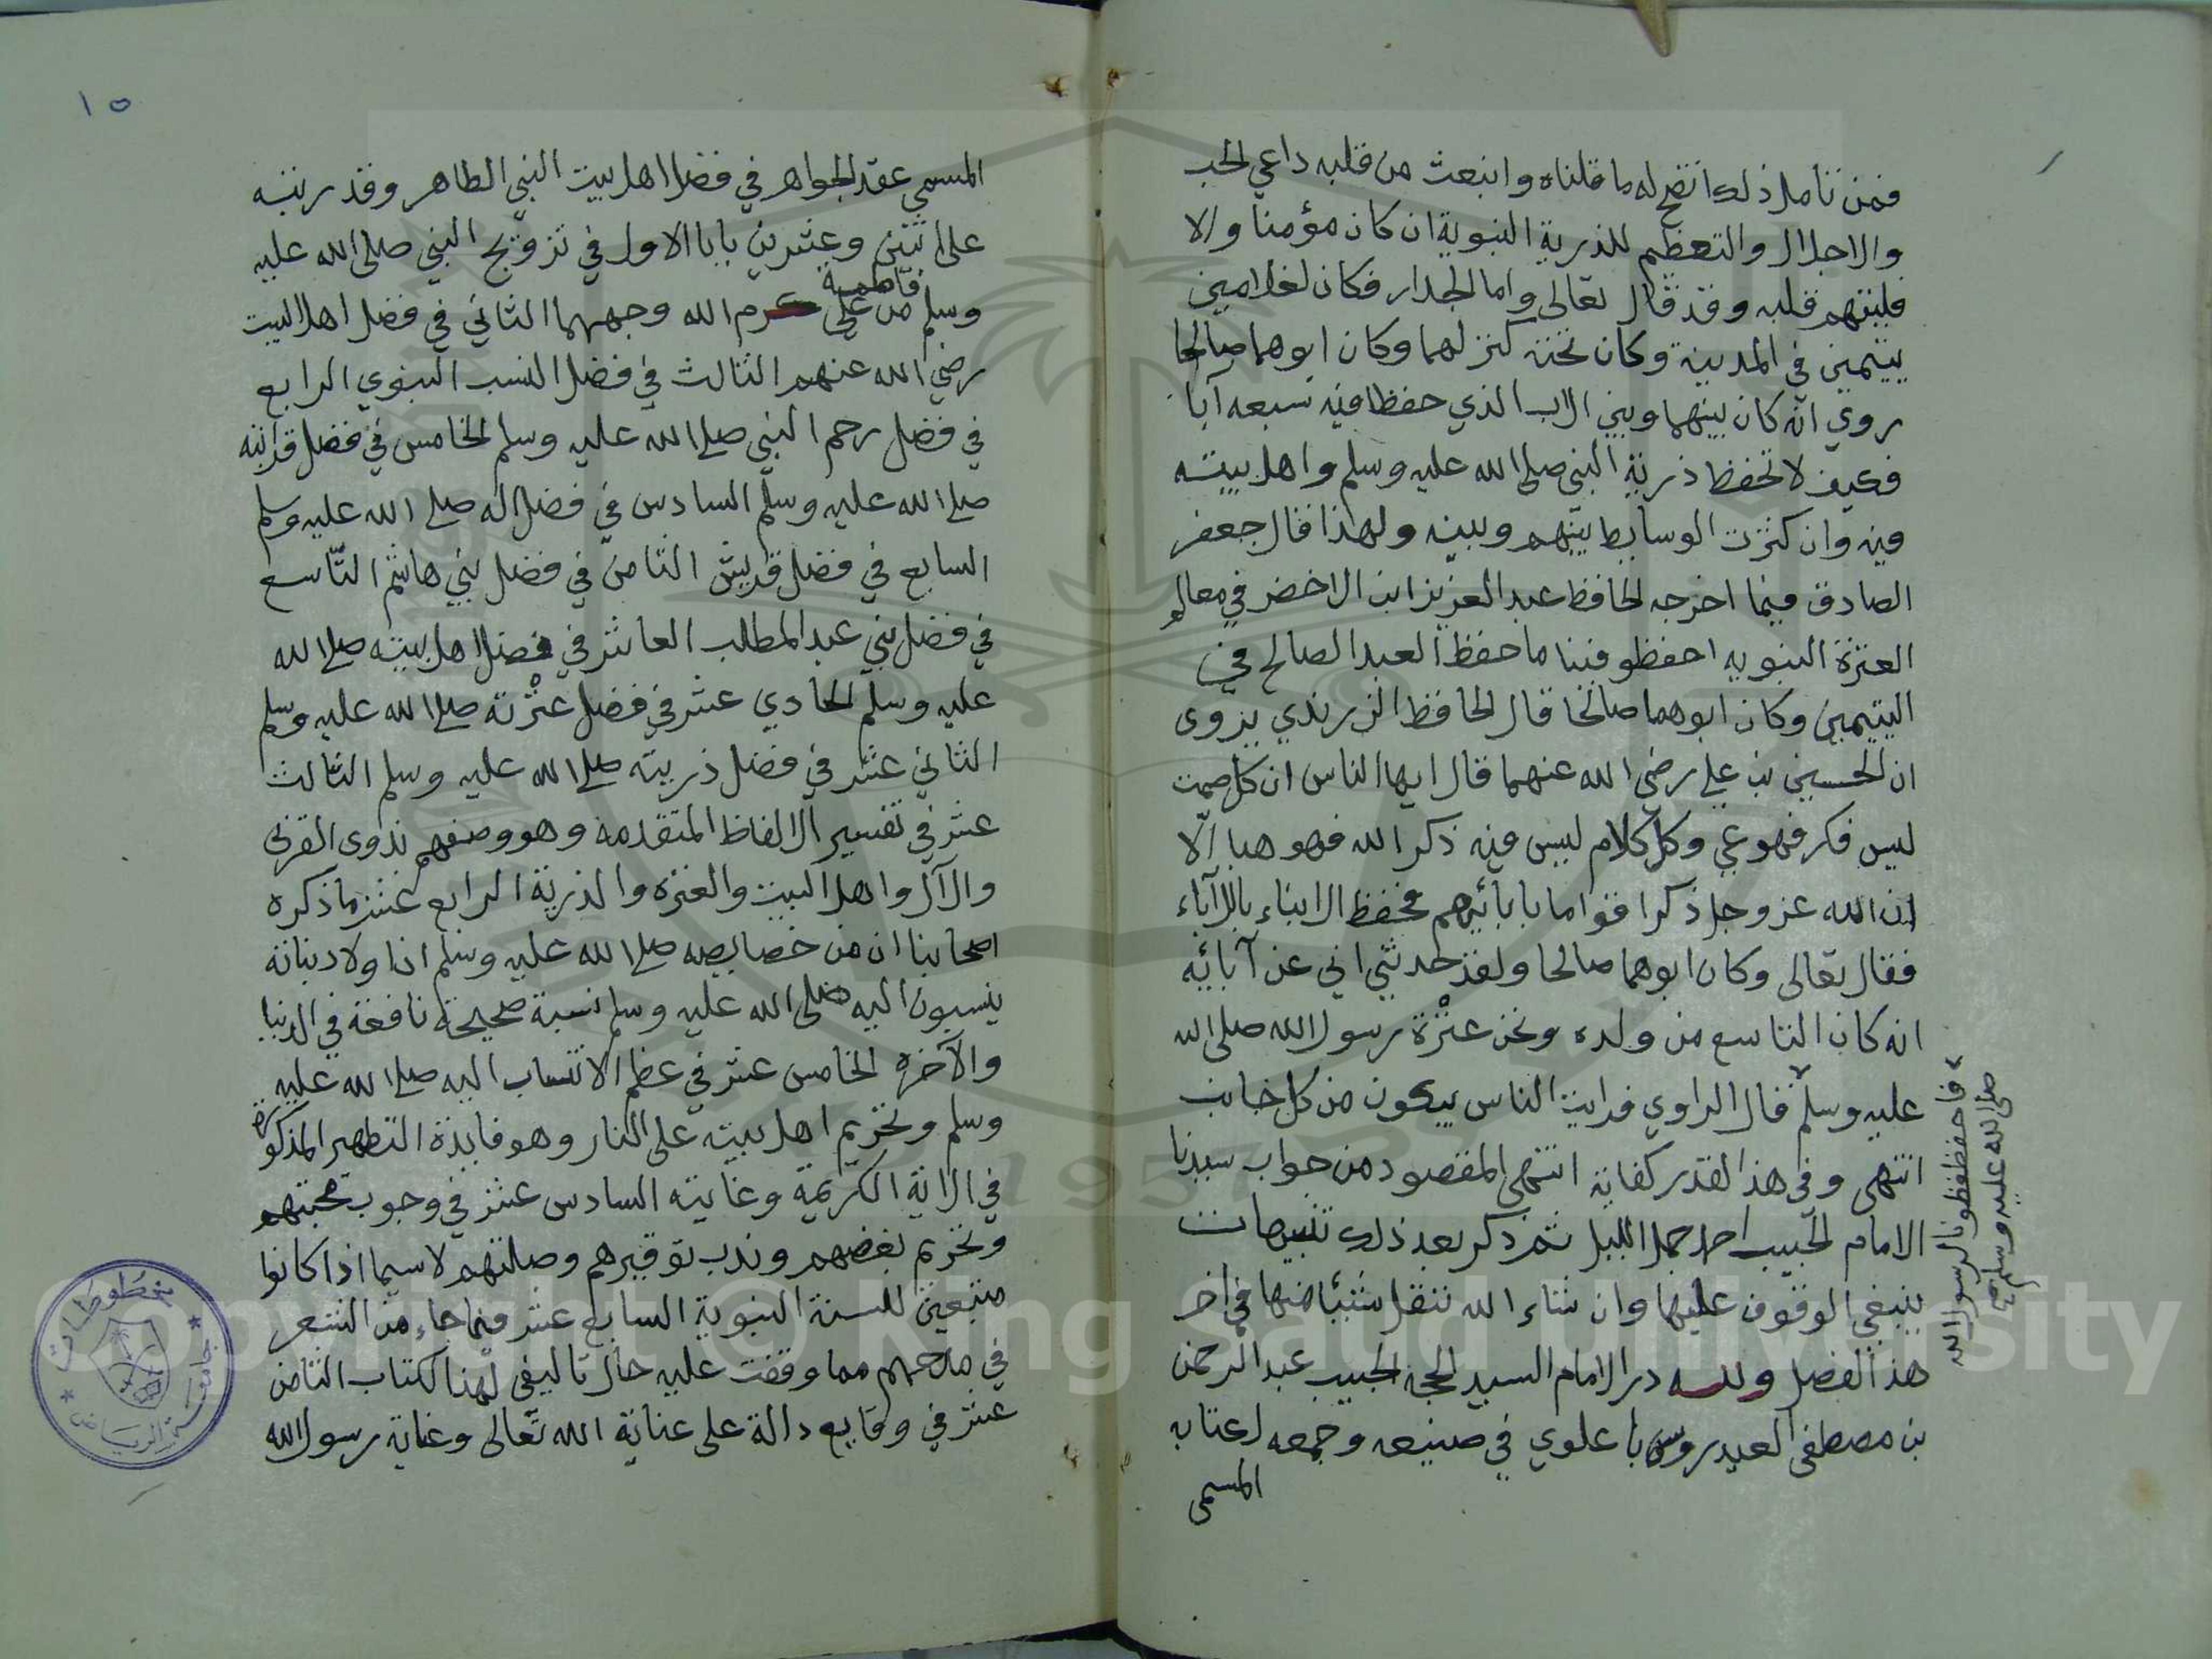 فمن تامل ذلك اتضح له ما قلناه وانبعث من قلبه داعي الحب
والاجلال والتعظيم للذرية النبوية ان كان مؤمنا والا
فليتهم قلبه وقد قال تعالى واما الجدار فكان لغلامين
يتيمين في المدينة وكان تحته كنز لهما وكان ابوهما صالحا
روي انه كان بينهما وبين الاب الذي حفظا فيه سبعه آبا
فكيف لا تحفظ ذرية النبي صلى الله عليه وسلم واهل بيته
فيه وان كثرت الوسايط بينهم وبينه ولهذا قال جعفر
الصادق فيما اخرجه الحافظ عبد العزيز ابن الاخضر في معالم
العترة النبويه احفظو فينا ما حفظ العبد الصالح في
اليتيمين وكان ابوهما صالحا قال الحافظ الزرندي يروى
ان الحسين بن علي رضي الله عنهما قال ايها الناس ان كل صمت
ليس فكر فهو عي وكل كلام ليس فيه ذكر الله فهو هبا الّا
ان الله عز وجل ذكر اقواما بابائهم فحفظ الابناء بالآباء
فقال تعالى وكان ابوهما صالحا ولقد حدثني ابي عن آبائه
انه كان التاسع من ولده ونحن عترة رسول الله صلى الله
عليه وسلم قال الراوي فرايت الناس يبكون من كل جانب
انتهى وفي هذا القدر كفاية انتهى المقصود من جواب سيدنا
الامام الحبيب احمد جمل الليل ثم ذكر بعد ذلك تنبيهات
ينبغي الوقوف عليها وان شاء الله ننقل شيئا منها في اخر
هذا الفصل ولله در الامام السيد الحجة الحبيب عبد الرحمن
بن مصطفى العيدروس با علوي في صنيعه وجمعه لكتابه
المسمى
فاحفظفظونا لرسول الله
صلى الله عليه وسلم صح
١٥
المسمى عقد الجواهر في فضل اهل بيت النبي الطاهر وقد رتبه
على اثنين وعشرين بابا الاول في تزويج النبي صلى الله عليه
فاطمة
وسلم من علي كرم الله وجههما الثاني في فضل اهل البيت
رضي الله عنهم الثالث في فضل النسب النبوي الرابع
في فضل رحم النبي صلى الله عليه وسلم الخامس في فضل قرابته
صلى الله عليه وسلم السادس في فضل اله صلى الله عليه وسلم
السابع في فضل قريش الثامن في فضل بني هاشم التّاسع
في فضل بني عبد المطلب العاشر في فضل اهل بيته صلى الله
عليه وسلم الحادي عشر في فضل عترته صلى الله عليه وسلم
الثاني عشر في فضل ذريته صلى الله عليه وسلم الثالث
عشر في تفسير الالفاظ المتقدمة وهو وصفهم بذوى القربى
والآل واهل البيت والعتره والذرية الرابع عشر ما ذكره
اصحابنا ان من خصايصه صلى الله عليه وسلم ان اولاد بناته
ينسبون اليه صلى الله عليه وسلم نسبة صحيحة نافعة في الدنيا
والآخره الخامس عشر في عظم الانتساب اليه صلى الله عليه
وسلم وتحريم اهل بيته على النار وهو فايدة التطهير المذكورة
في الاية الكريمة وغايته السادس عشر في وجوب محبتهم
وتحريم بغضهم وندب توقيرهم وصلتهم لاسيما اذا كانوا
متبعين للسنة النبوية السابع عشر فيما جاء من الشعر
في مدحهم مما وقفت عليه حال تاليفي لهذا الكتاب الثامن
عشر في وقايع دالة على عناية الله تعالى وعناية رسول الله
مخطوطات
جامعة الرياض
Copyright © King Saud University
1957